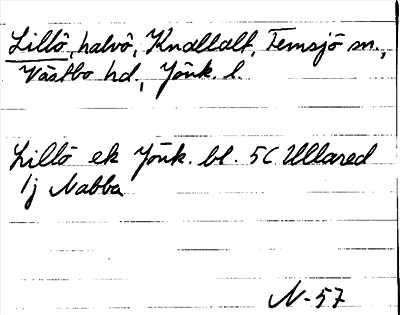 Lillö, halvö, Knallalt, Femsjö sn.,
Västbo hd., Jönk. l.
Lillö ek Jönk. bl. 5C Ullared
1j Nabba
N-57